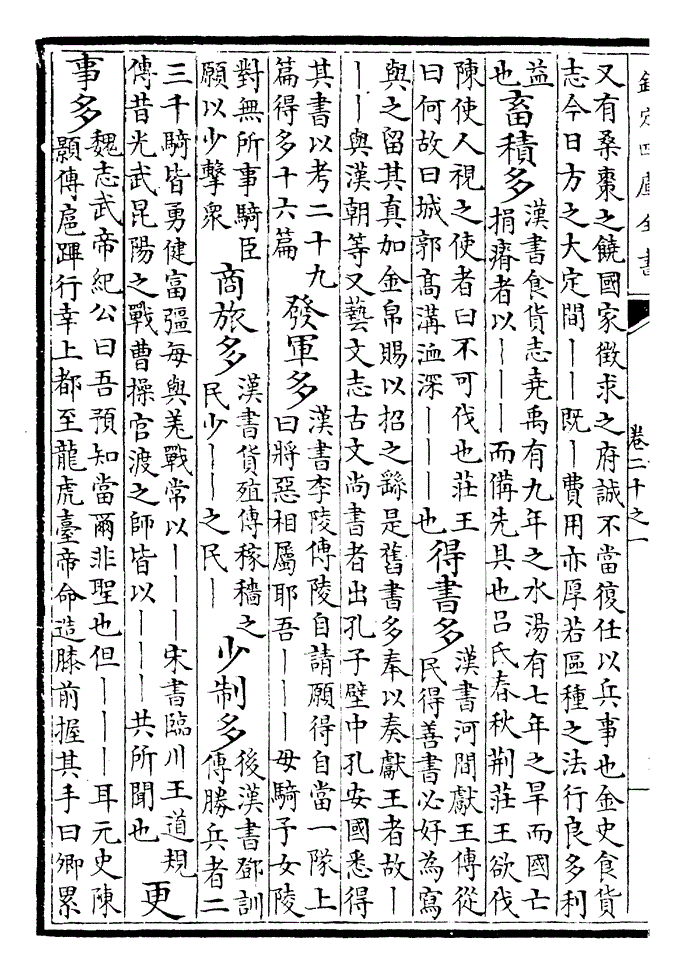 欽定四庫全書
卷二十之一
又有桑棗之饒國家徵求之府誠不當復任以兵事也金史食貨
志今日方之大定間——既—費用亦厚若區種之法行良多利
益
也
畜積多
漢書食貨志堯禹有九年之水湯有七年之旱而國亡
捐瘠者以——而備先具也吕氏春秋荆莊王欲伐
陳使人視之使者曰不可伐也莊王
曰何故曰城郭髙溝洫深———也
得書多
漢書河間獻王傳從
民得善書必好為寫
與之留其真加金帛賜以招之繇是舊書多奉以奏獻王者故—
——與漢朝等又藝文志古文尚書者出孔子壁中孔安國悉得
其書以考二十九
篇得多十六篇
發軍多
漢書李陵傳陵自請願得自當一隊上
曰將惡相屬耶吾———毋騎予女陵
對無所事騎臣
願以少擊衆
商旅多
漢書貨殖傳稼穡之
民少——之民—
少制多
後漢書鄧訓
傳勝兵者二
三千騎皆勇健富彊每與羌戰常以———宋書臨川王道規
傳昔光武昆陽之戰曹操官渡之師皆以———共所聞也
更
事多
魏志武帝紀公曰吾預知當爾非聖也但———耳元史陳
顥傳扈蹕行幸上都至龍虎臺帝命造膝前握其手曰卿累